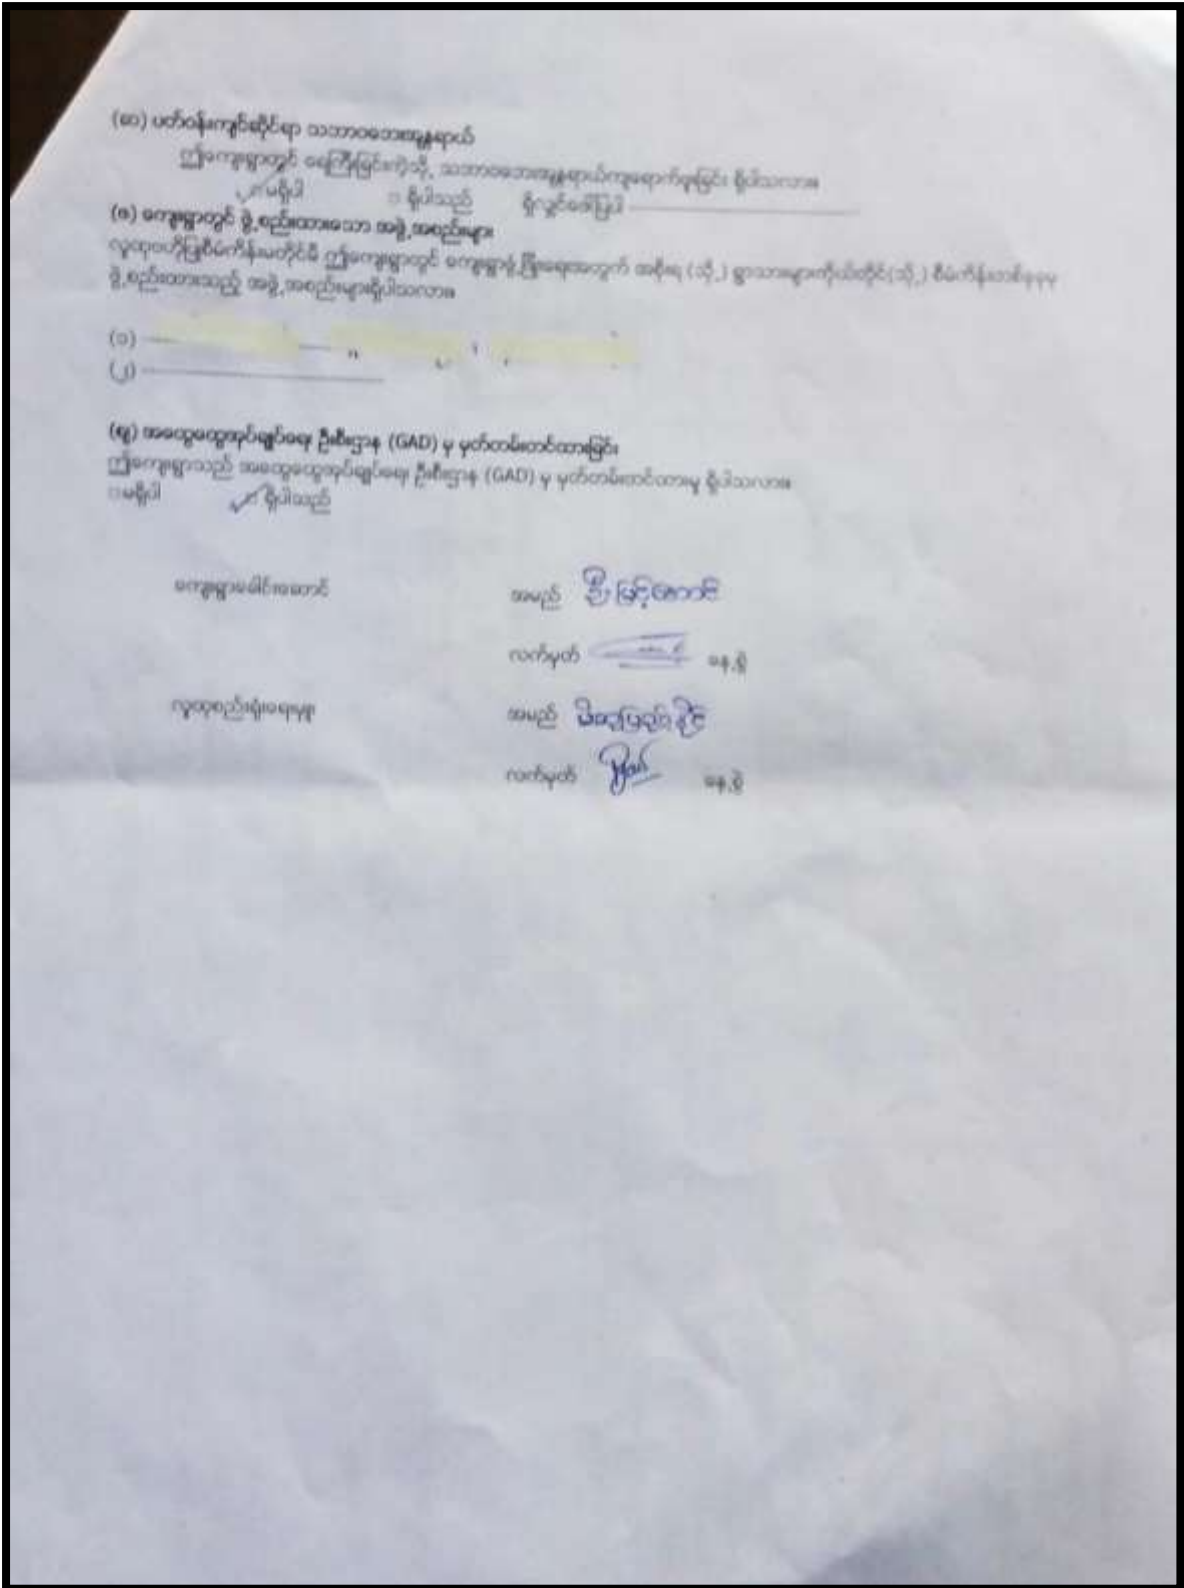 (ဆ) ပတ်ဝန်းကျင်ဆိုင်ရာ သဘာဝဘေးအန္တရာယ်
ဤကျေးရွာတွင် ရေကြီးခြင်းကဲ့သို့ သဘာဝဘေးအန္တရာယ်ကျရောက်ဖူးခြင်း ရှိပါသလား။
✓□ မရှိပါ □ ရှိပါသည် ရှိလျှင်ဖေါ်ပြပါ
(ဇ) ကျေးရွာတွင် ဖွဲ့စည်းထားသော အဖွဲ့အစည်းများ
လူထုဗဟိုပြုစီမံကိန်းမတိုင်မီ ဤကျေးရွာတွင် ကျေးရွာဖွံ့ဖြိုးရေးအတွက် အစိုးရ (သို့) ရွာသားများကိုယ်တိုင်(သို့) စီမံကိန်းတစ်ခုခုမှ
ဖွဲ့စည်းထားသည့် အဖွဲ့အစည်းများရှိပါသလား။
(၁)
(၂)
(ဈ) အထွေထွေအုပ်ချုပ်ရေး ဦးစီးဌာန (GAD) မှ မှတ်တမ်းတင်ထားခြင်း
ဤကျေးရွာသည် အထွေထွေအုပ်ချုပ်ရေး ဦးစီးဌာန (GAD) မှ မှတ်တမ်းတင်ထားမှု ရှိပါသလား။
□ မရှိပါ ✓□ ရှိပါသည်
ကျေးရွာခေါင်းဆောင် အမည် ဦးမြင့်အောင်
လက်မှတ် နေ့စွဲ
လူထုစည်းရုံးရေးမှူး အမည်
လက်မှတ် နေ့စွဲ